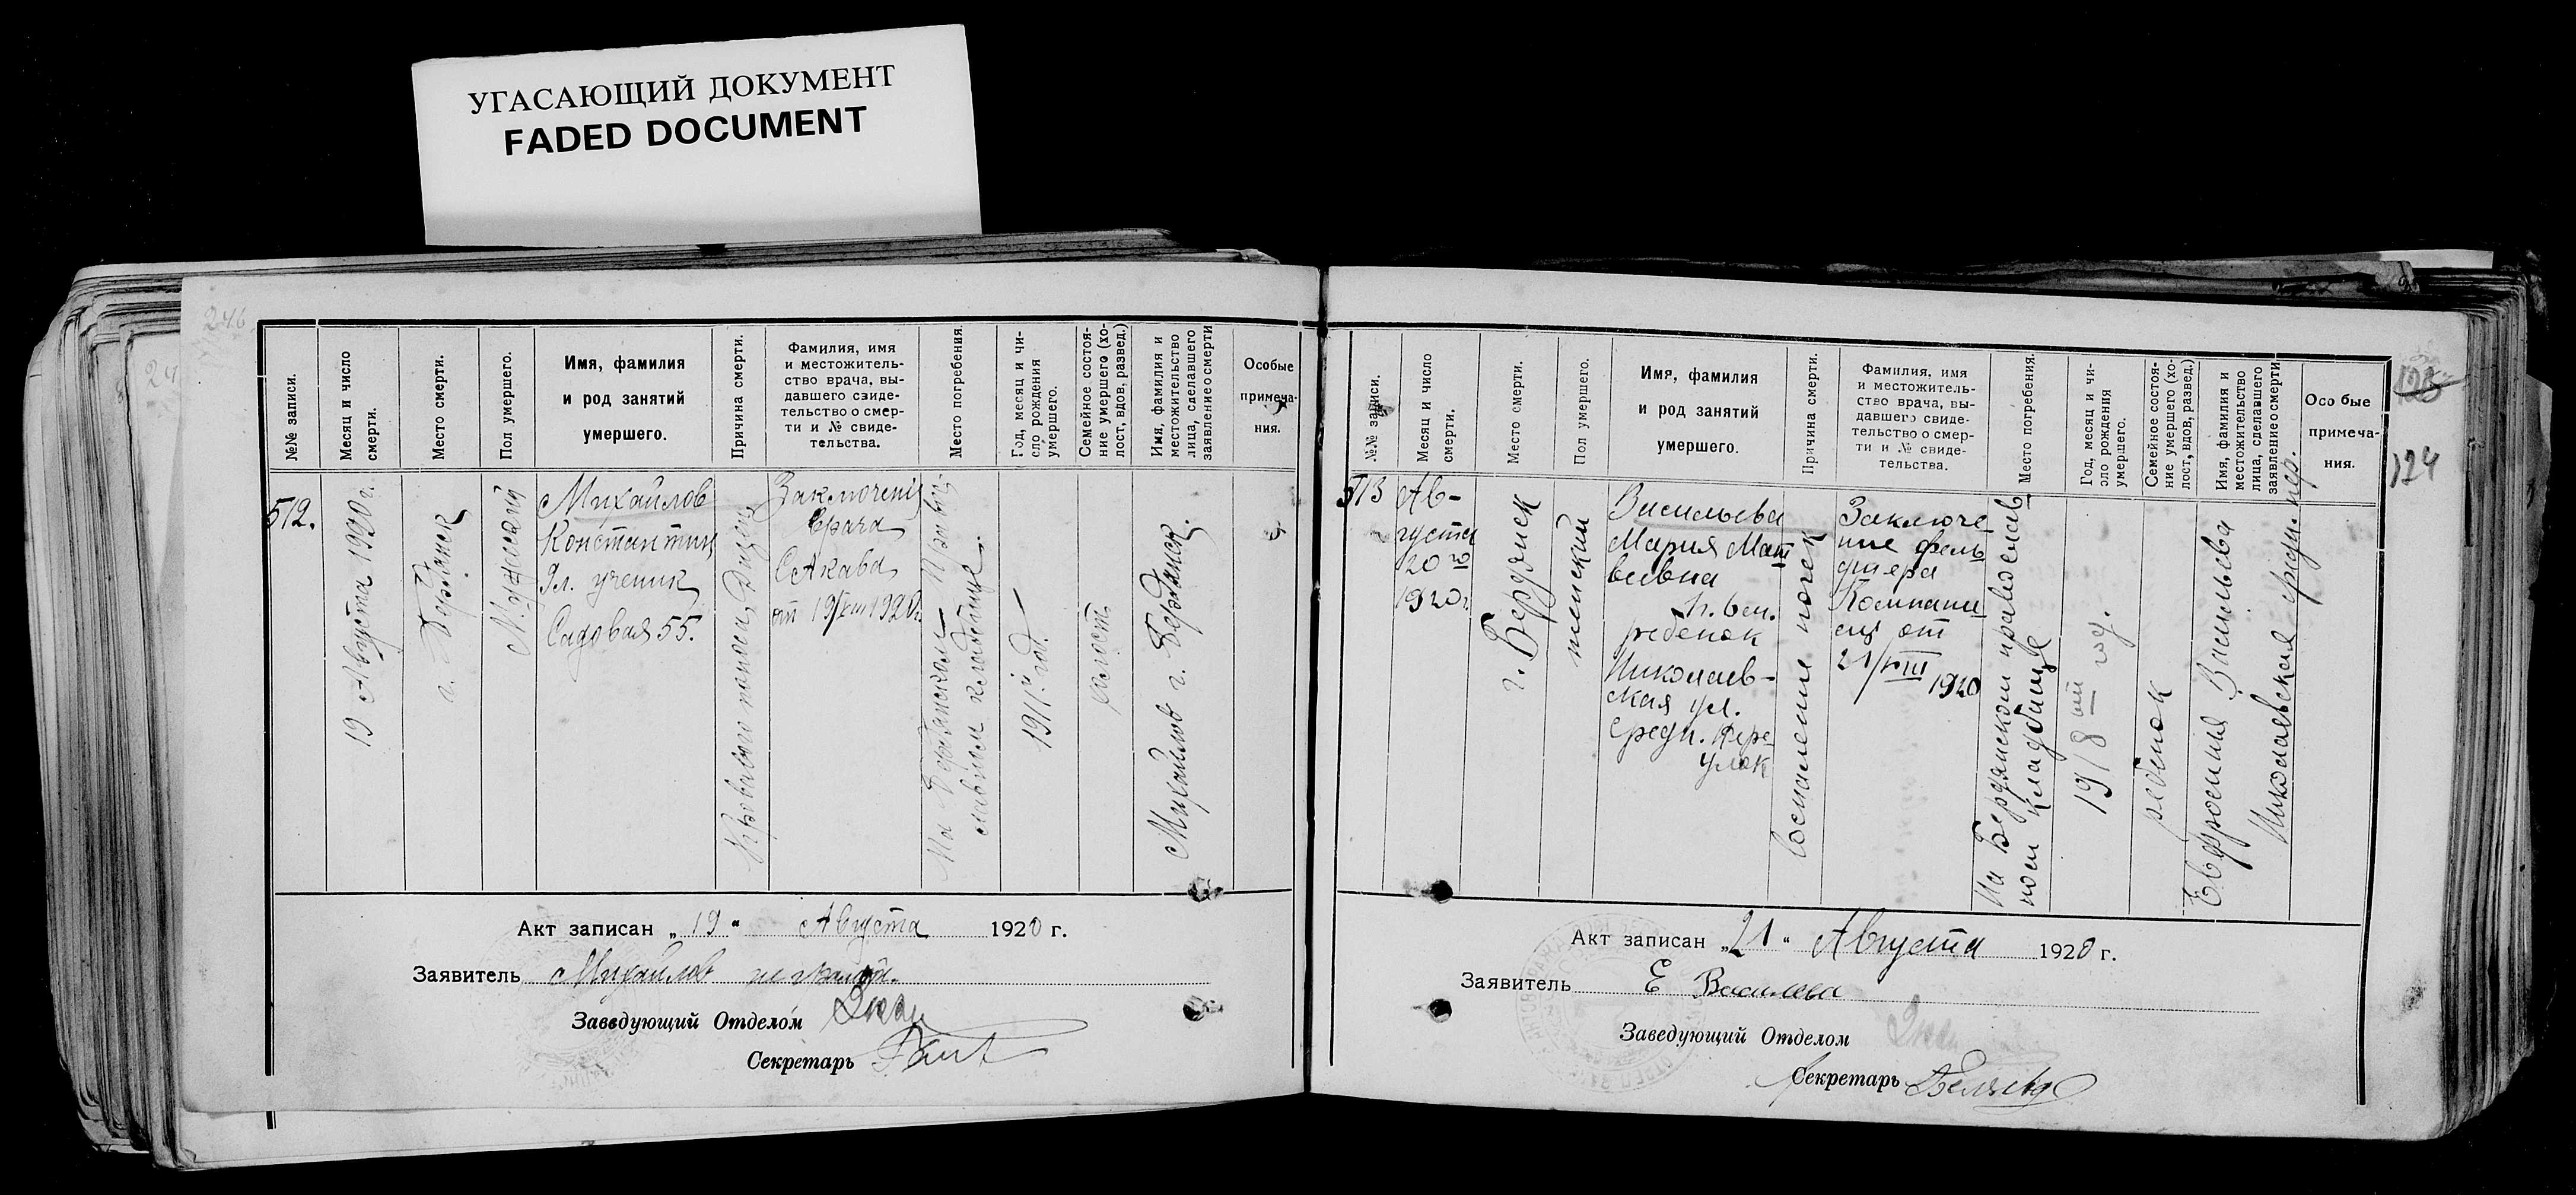 УГАСАЮЩИЙ ДОКУМЕНТ
FADED DOCUMENT
246
№№ записи.
Месяц и число
смерти.
Место смерти.
Пол умершего.
Имя, фамилия
и род занятий
умершего.
Причина смерти.
Фамилия, имя
и местожитель-
ство врача, вы-
давшего свиде-
тельство о смер-
ти и № свиде-
тельства.
Место погребения.
Год, месяц и чи-
сло рождения
умершего.
Семейное состоя-
ние умершего (хо-
лост, вдов, развед.)
Имя, фамилия и
местожительство
лица, сделавшего
заявление о смерти
Особые
примеча-
ния.
512.
19 Августа 1920 г.
г. Бердянск
Мужской
Михайлов
Константин
Гл. ученик
Садовая 55.
Кровавый понос
Заключение
врача
Сакава
от 19/VIII 1920 г.
На Бердянском Правос-
лавном кладбище.
1911й год.
холост
Михайлов г. Бердянск.
Акт записан „19" Августа 1920 г.
Заявитель Михайлов
Заведующий Отделом
Секретарь
№№ записи.
Месяц и число
смерти.
Место смерти.
Пол умершего.
Имя, фамилия
и род занятий
умершего.
Причина смерти.
Фамилия, имя
и местожитель-
ство врача, вы-
давшего свиде-
тельство о смер-
ти и № свиде-
тельства.
Место погребения.
Год, месяц и чи-
сло рождения
умершего.
Семейное состоя-
ние умершего (хо-
лост, вдов, развед.)
Имя, фамилия и
местожительство
лица, сделавшего
заявление о смерти
Особые
примеча-
ния.
123
124
513
Ав-
густа
20 го
1920 г.
г. Бердянск
женский
Васильева
Мария Мат
веевна
ребенок
Николаев-
ская ул.
Средн. пере-
улок
воспаление почек
Заключе
ние фель
дшера
Компани
ец от
21/VIII
1920
На Бердянском православ
ном кладбище
1918 ый год.
ребенок
Евфросиния Васильева
Николаевская средн. пер.
Акт записан „21" Августа 1920 г.
Заявитель Е Василева
Заведующий Отделом
Секретарь